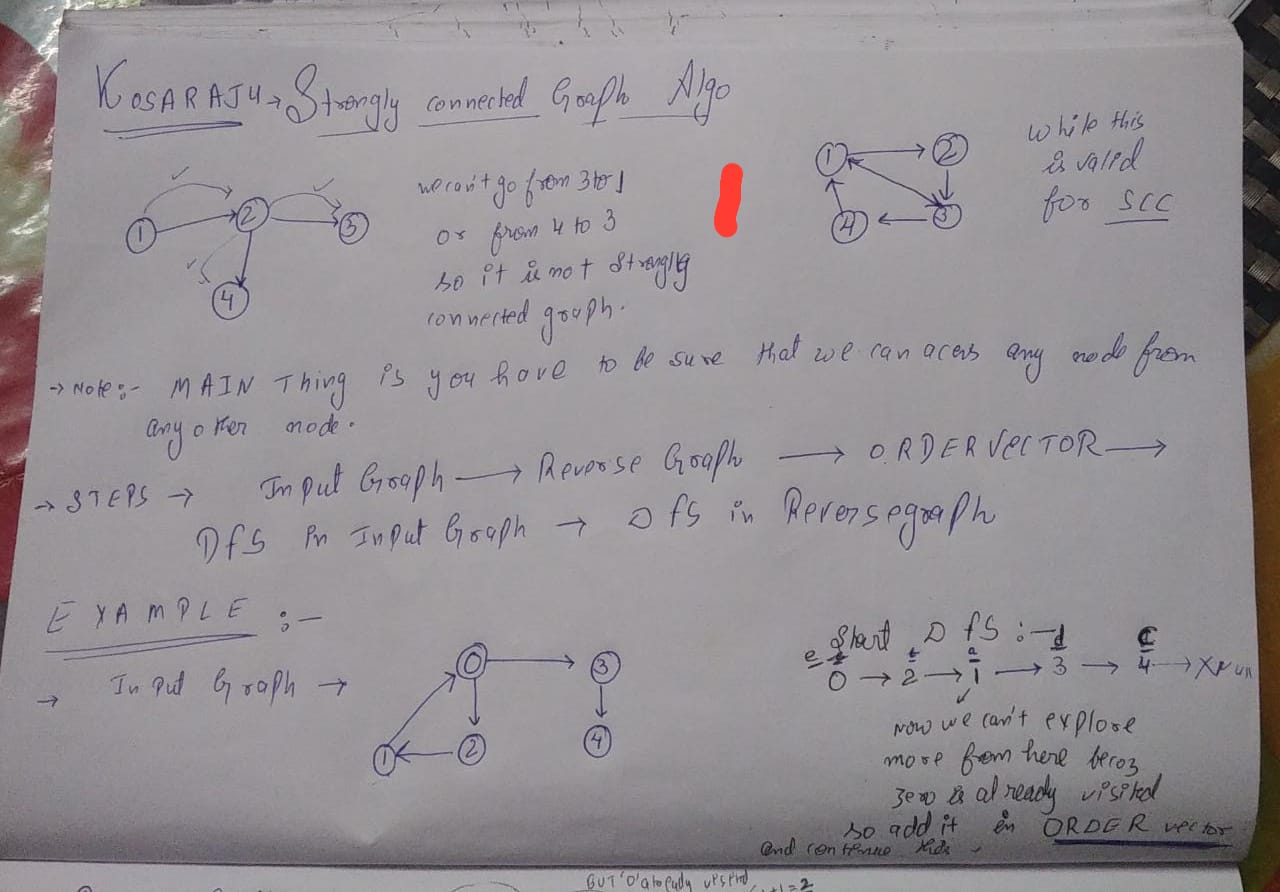 KOSARAJU → Strongly connected Graph Algo
we can't go from 3 to 1
or from 4 to 3
so it is not strongly
connected graph.
1
2
3
4
1
2
3
4
while this
is valid
for SCC
→ Note:- MAIN Thing is you have to be sure that we can acess any node from
any other node.
→ STEPS → Input Graph → Reverse Graph → ORDER VECTOR →
DfS in Input Graph → DfS in Reversegraph
EXAMPLE :-
→ Input Graph →
0
3
1
2
4
Start DfS :-
e a d c
0 → 2 → 1 → 3 → 4 → X Null
now we can't explore
more from here becoz
zero is already visited
so add it in ORDER vector
and continue this.
BUT '0' already visited